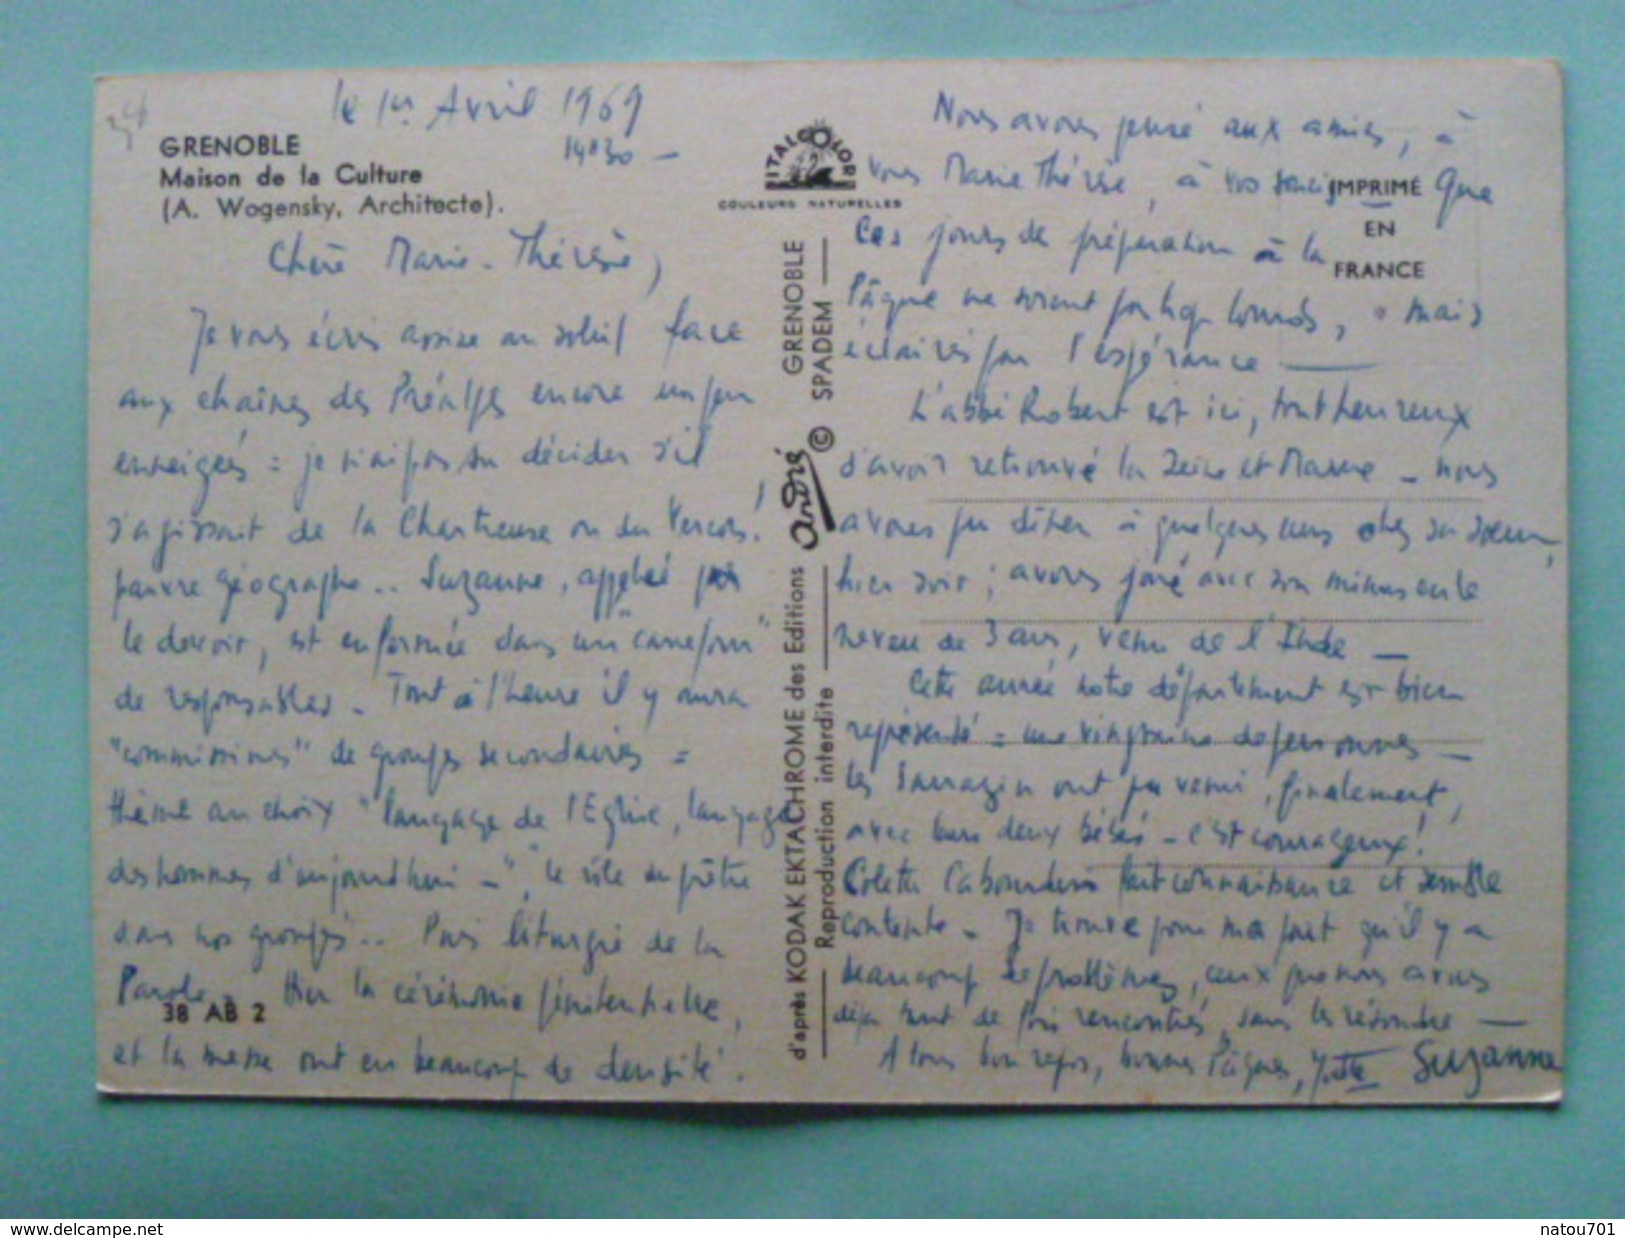 le 1er Avril 1969
14h30 -
GRENOBLE
Maison de la Culture
(A. Wogensky, Architecte).
Chère Marie-Thérèse,
Je vous écris assise au soleil face
aux chaînes des Préalpes encore un peu
enneigées = je n'ai pas su décider s'il
s'agissait de la Chartreuse ou du Vercors!
pauvre géographe.. Suzanne, appelée par
le devoir, est enfermée dans un "carrefour"
de responsables - Tout à l'heure il y aura
"commissions" de groupes secondaires =
thème au choix "langage de l'Eglise, langage
des hommes d'aujourd'hui -", "le rôle du prêtre
dans nos groupes.. Puis liturgie de la
Parole - Hier la cérémonie pénitentielle,
et la messe ont eu beaucoup de densité.
38 AB 2
ITALCOLOR
COULEURS NATURELLES
GRENOBLE
SPADEM
©
andré
d'après KODAK EKTACHROME des Editions
Reproduction interdite
IMPRIMÉ
EN
FRANCE
Nous avons pensé aux amies, à
vous Marie Thérèse, à vos soucis Que
Ces jours de préparation à la
Pâque ne soient pas trop lourds, mais
éclairés par l'espérance
L'abbé Robert est ici, tout heureux
d'avoir retrouvé la Seine et Marne - nous
avons pu dîner à quelques uns chez sa soeur,
hier soir ; avons joué avec son minuscule
neveu de 3 ans, venu de l'Inde -
Cette année notre département est bien
représenté = une vingtaine de personnes -
les Sarrazin ont pu venir, finalement,
avec leurs deux bébés - c'est courageux!
Colette fait connaissance et semble
contente - Je trouve pour ma part qu'il y a
beaucoup de problèmes, ceux que nous avons
déjà tant de fois rencontrés, sans les résoudre -
A tous bon repos, bonnes Pâques, Suzanne
www.delcampe.net
natou701